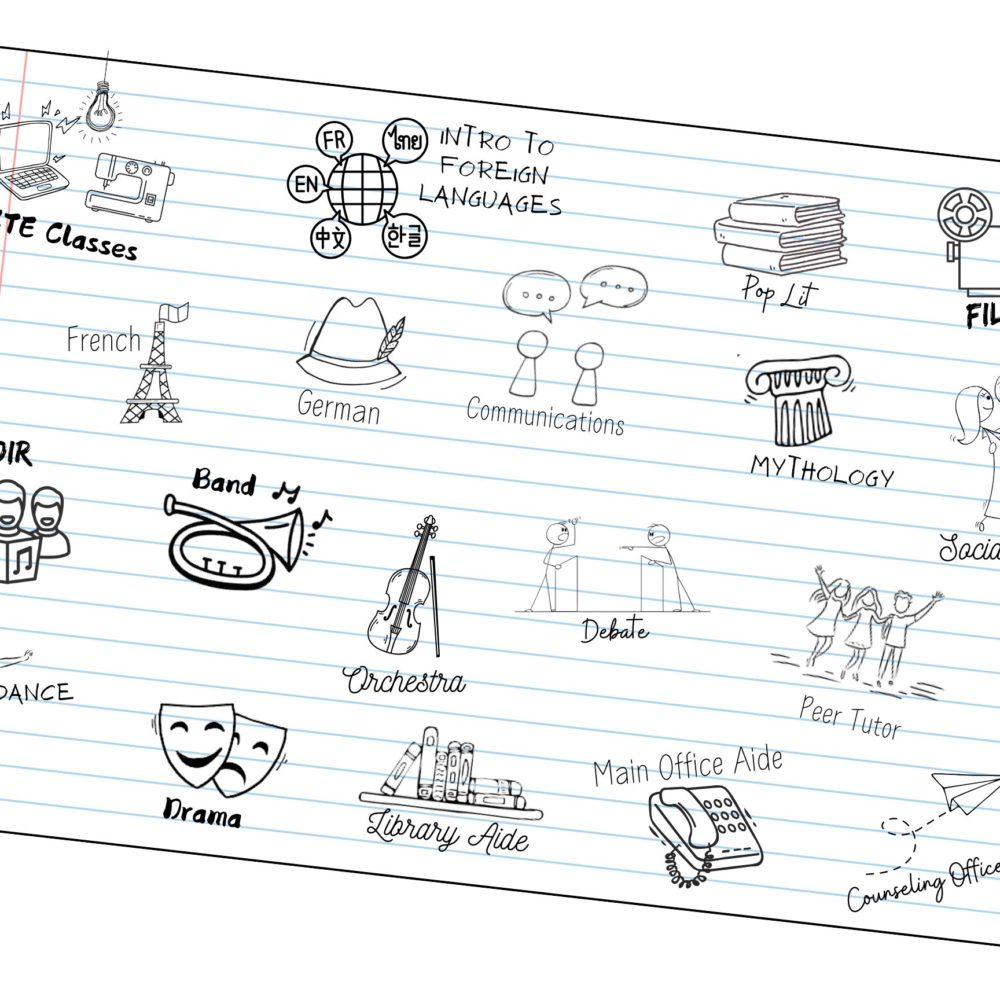 FR
ไทย
EN
中文
한글
INTRO TO
FOREIGN
LANGUAGES
Classes
Pop Lit
French
German
Communications
MYTHOLOGY
Band
Debate
Orchestra
DANCE
Peer Tutor
Drama
Library Aide
Main Office Aide
Counseling Office